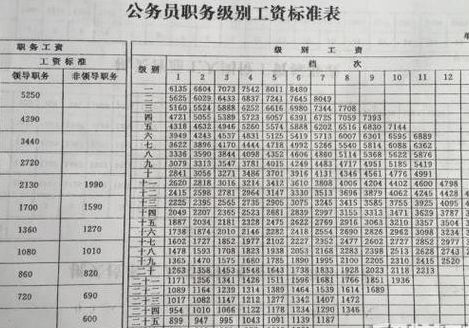 公务员职务级别工资标准表
职务工资 级别工资
工资标准 级别 档次
领导职务 非领导职务 1 2 3 4 5 6 7 8 9 10 11 12
一 6135 6604 7073 7542 8011 8480
5250 二 5625 6029 6433 6837 7241 7645 8049
三 5160 5524 5888 6252 6616 6980 7344 7708
4290 四 4721 5055 5389 5723 6057 6391 6725 7059 7393
五 4318 4632 4946 5260 5574 5888 6202 6516 6830 7144
3440 六 3949 4243 4537 4831 5125 5419 5713 6007 6301 6595 6889
七 3622 3896 4170 4444 4718 4992 5266 5540 5814 6088 6362
2720 八 3336 3590 3844 4098 4352 4606 4860 5114 5368 5622 5876
九 3079 3313 3547 3781 4015 4249 4483 4717 4951 5185 5419
十 2841 3056 3271 3486 3701 3916 4131 4346 4561 4776 4991
2130 1990 十一 2620 2818 3016 3214 3412 3610 3808 4006 4204 4402 4600 4798
十二 2415 2598 2781 2964 3147 3330 3513 3696 3879 4062 4245 4428
1700 1590 十三 2225 2395 2565 2735 2905 3075 3245 3415 3585 3755 3925 4095
十四 2049 2207 2365 2523 2681 2839 2997 3155 3313 3471 3629 3787
1360 1270 十五 1887 2034 2181 2328 2475 2622 2769 2916 3063 3210 3357 3504
十六 1738 1874 2010 2146 2282 2418 2554 2690 2826 2962 3098 3234
十七 1602 1727 1852 1977 2102 2227 2352 2477 2602 2727 2852 2977
1080 1010 十八 1478 1593 1708 1823 1938 2053 2168 2283 2398 2513 2628 2743
十九 1365 1470 1575 1680 1785 1890 1995 2100 2205 2310 2415 2520
860 820 二十 1263 1358 1453 1548 1643 1738 1833 1928 2023 2118 2213
二十一 1171 1256 1341 1426 1511 1596 1681 1766 1851 1936
720 690 二十二 1089 1164 1239 1314 1389 1464 1539 1614 1689
二十三 1017 1082 1147 1212 1277 1342 1407 1472
二十四 954 1010 1066 1122 1178 1234 1290 1346
600 二十五 899 947 995 1043 1091 1139 1187